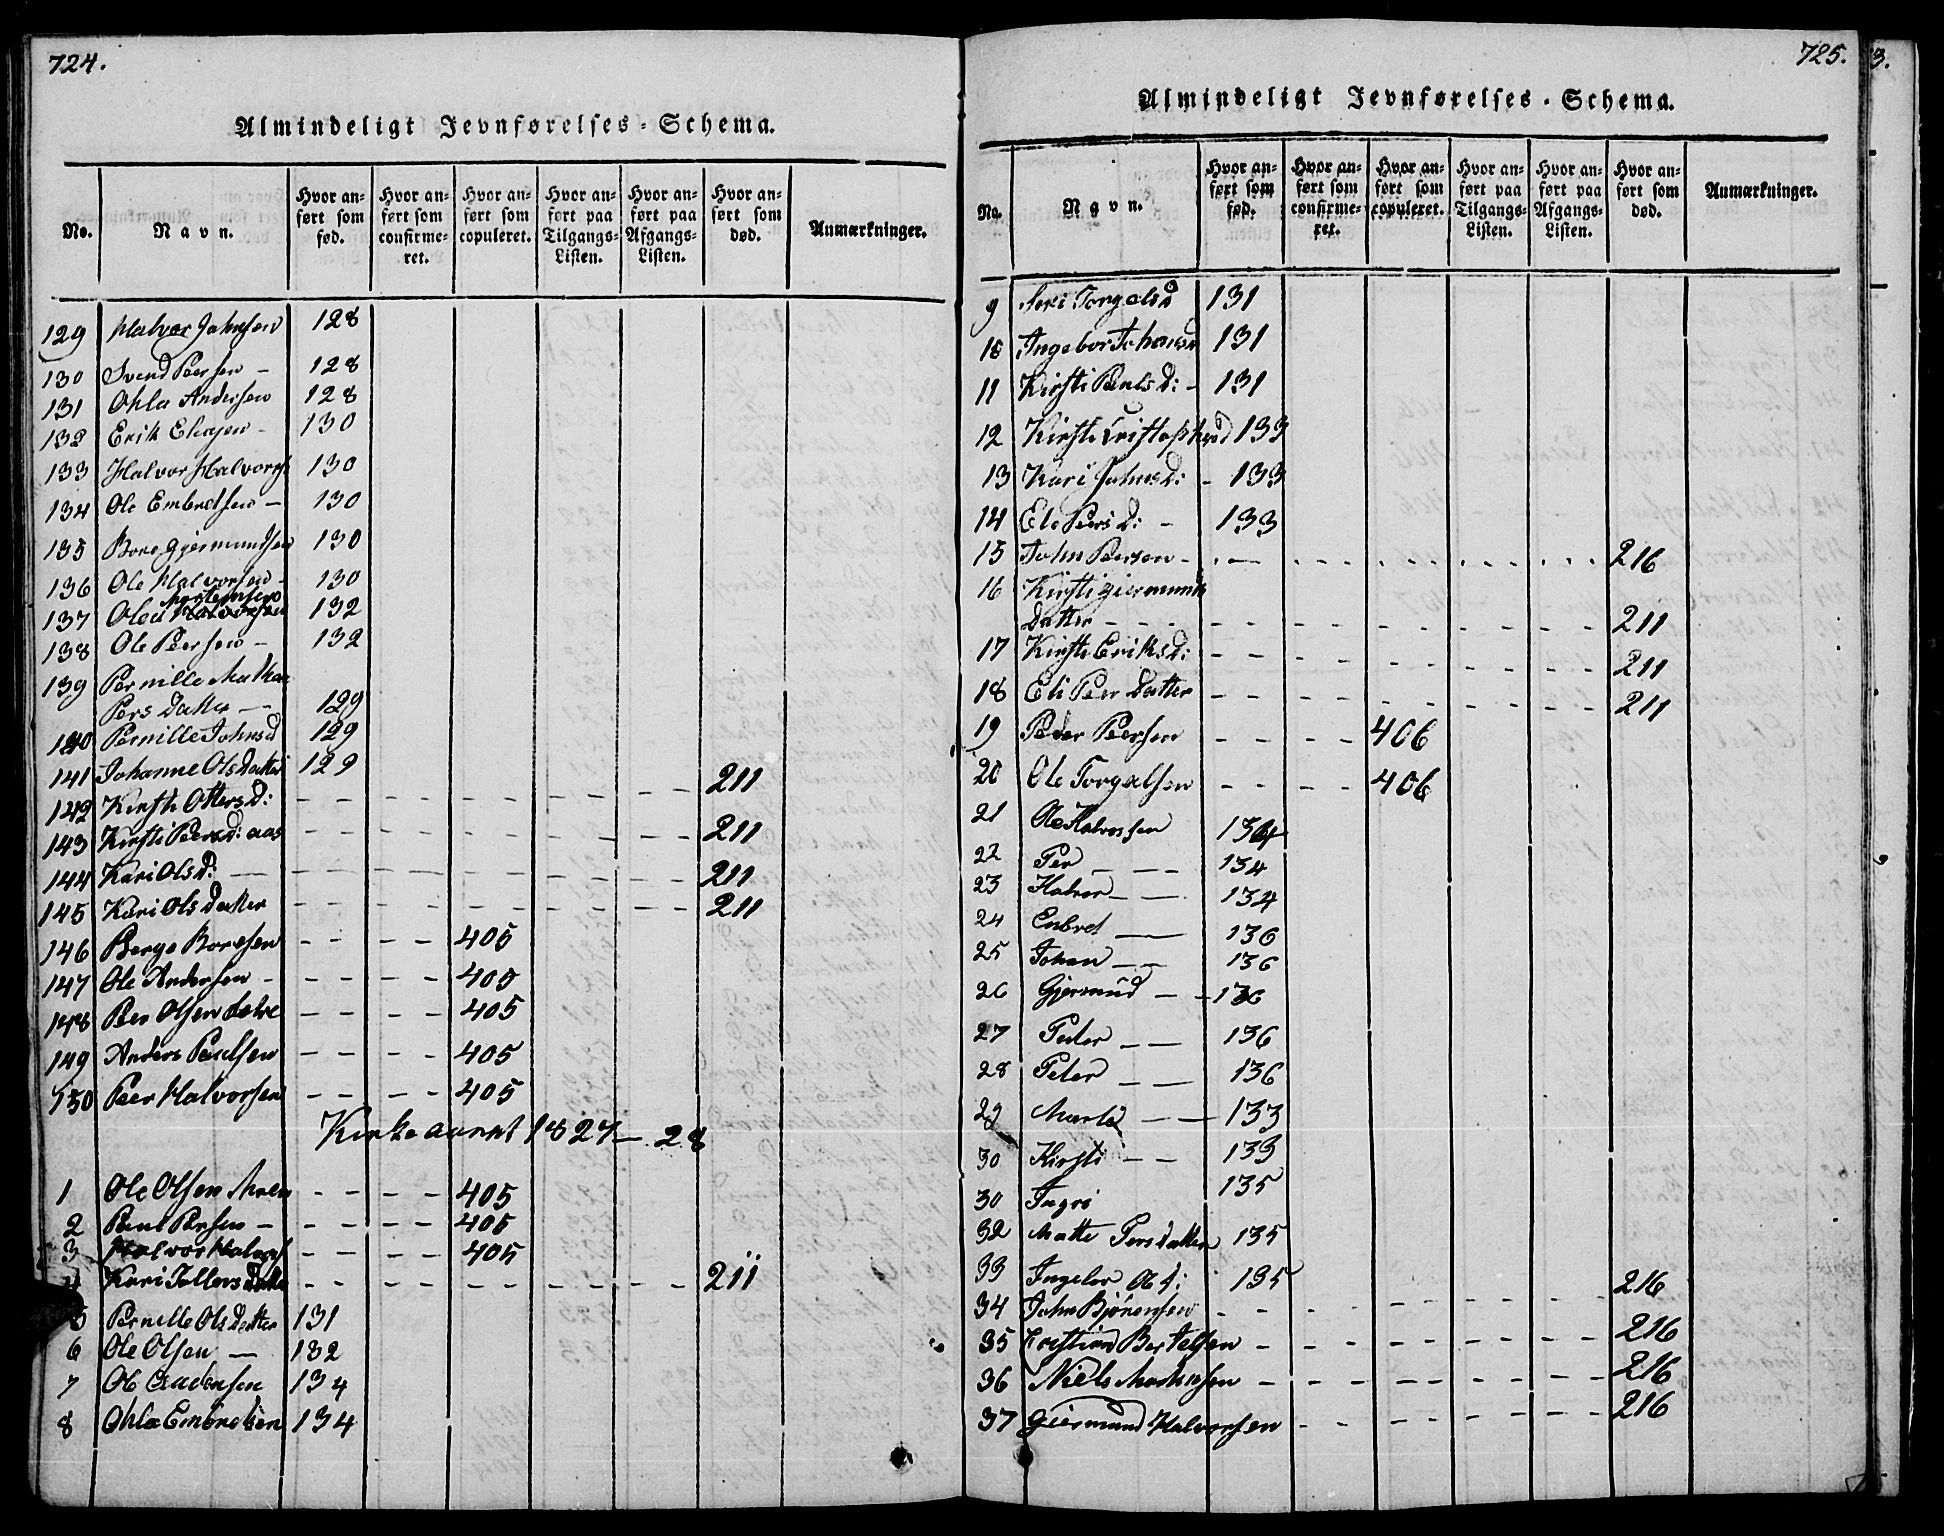 724.
Almindeligt Jevnførelses-Schema.
No. Navn. Hvor anført som fød. Hvor anført som confirmeret. Hvor anført som copuleret. Hvor anført paa Tilgangs-Listen. Hvor anført paa Afgangs-Listen. Hvor anført som død. Anmærkninger.
129 Halvor Johnsen 128
130 Svend Peersen – 128
131 Ohla Andersen 128
132 Erik – 130
133 Halvor Halvors 130
134 Ole Embretsen – 130
135 Bore Gjermundsen 130
136 Ole Halvorsen – 130
137 132
138 Ole Peersen – 132
139 Pernille
Pers Datter – – 129
140 Pernille Johnsd 129
141 Johanne Olsdatter 129
142 Kirsti Ottersd: – – – – – – – – – – 211
143 Kirsti Peersd: aas – – – – – – – – – – 211
144 Kari Olsd: – – – – – – – – – – 211
145 Kari Olsdatter – – – – – – – – – – 211
146 Berge Boresen – – – – 405
147 Ole Andersen – – – – – 405
148 Peer Olsen – – – – 405
149 Anders Paulsen – – – – 405
150 Peer Halvorsen – – – – 405
Kirkeaaret 1827 – 28
1 Ole Olsen Moen – – – – 405
2 Paul Persen – – – – – 405
3 Halvor – – – 405
4 Kari – – – – – – – – – – 211
5 Pernille Olsdatter 131
6 Ole Olsen – 132
7 Ole 134
8 Ohla Embretsen 134
725.
Almindeligt Jevnførelses-Schema.
No. Navn. Hvor anført som fød. Hvor anført som confirmeret. Hvor anført som copuleret. Hvor anført paa Tilgangs-Listen. Hvor anført paa Afgangs-Listen. Hvor anført som død. Anmærkninger.
9 Torgalsd 131
10 Ingebor Johansd 131
11 Kirsti Paulsd: – 131
12 Kirsti 133
13 Kari Johnsd: – 133
14 Eli Peersd: – 133
15 John Peersen – . – . . . . . . . . . . . 216
16 Kirsti Giermunds
Datter – – – – – – – – – – – – – 211
17 Kirsti Eriksd: – – – – – – – – – – 211
18 Eli Peer Datter – – – – – – – – – – 211
19 Peder Peersen – – – – 406
20 Ole Torgalsen – – – – 406
21 Ole Halvorsen 134
22 Per – – – 134
23 Halvor – – 134
24 Enbret – – 136
25 Johan – – 136
26 Gjermund – – 136
27 Peder – – 136
28 Peter – – 136
29 – – 133
30 Kirsti – – 133
30 Ingri 135
32 Matte Persdatter 135
33 Ingebor Olsd: 135
34 John Bjørnsen – – – – – – – – – – 216
35 Cristian Bertelsen – – – – – – – – – 216
36 Niels Madsisen – – – – – – – – – 216
37 Giermund Halvorsen – – – – – – – – – 216
3.